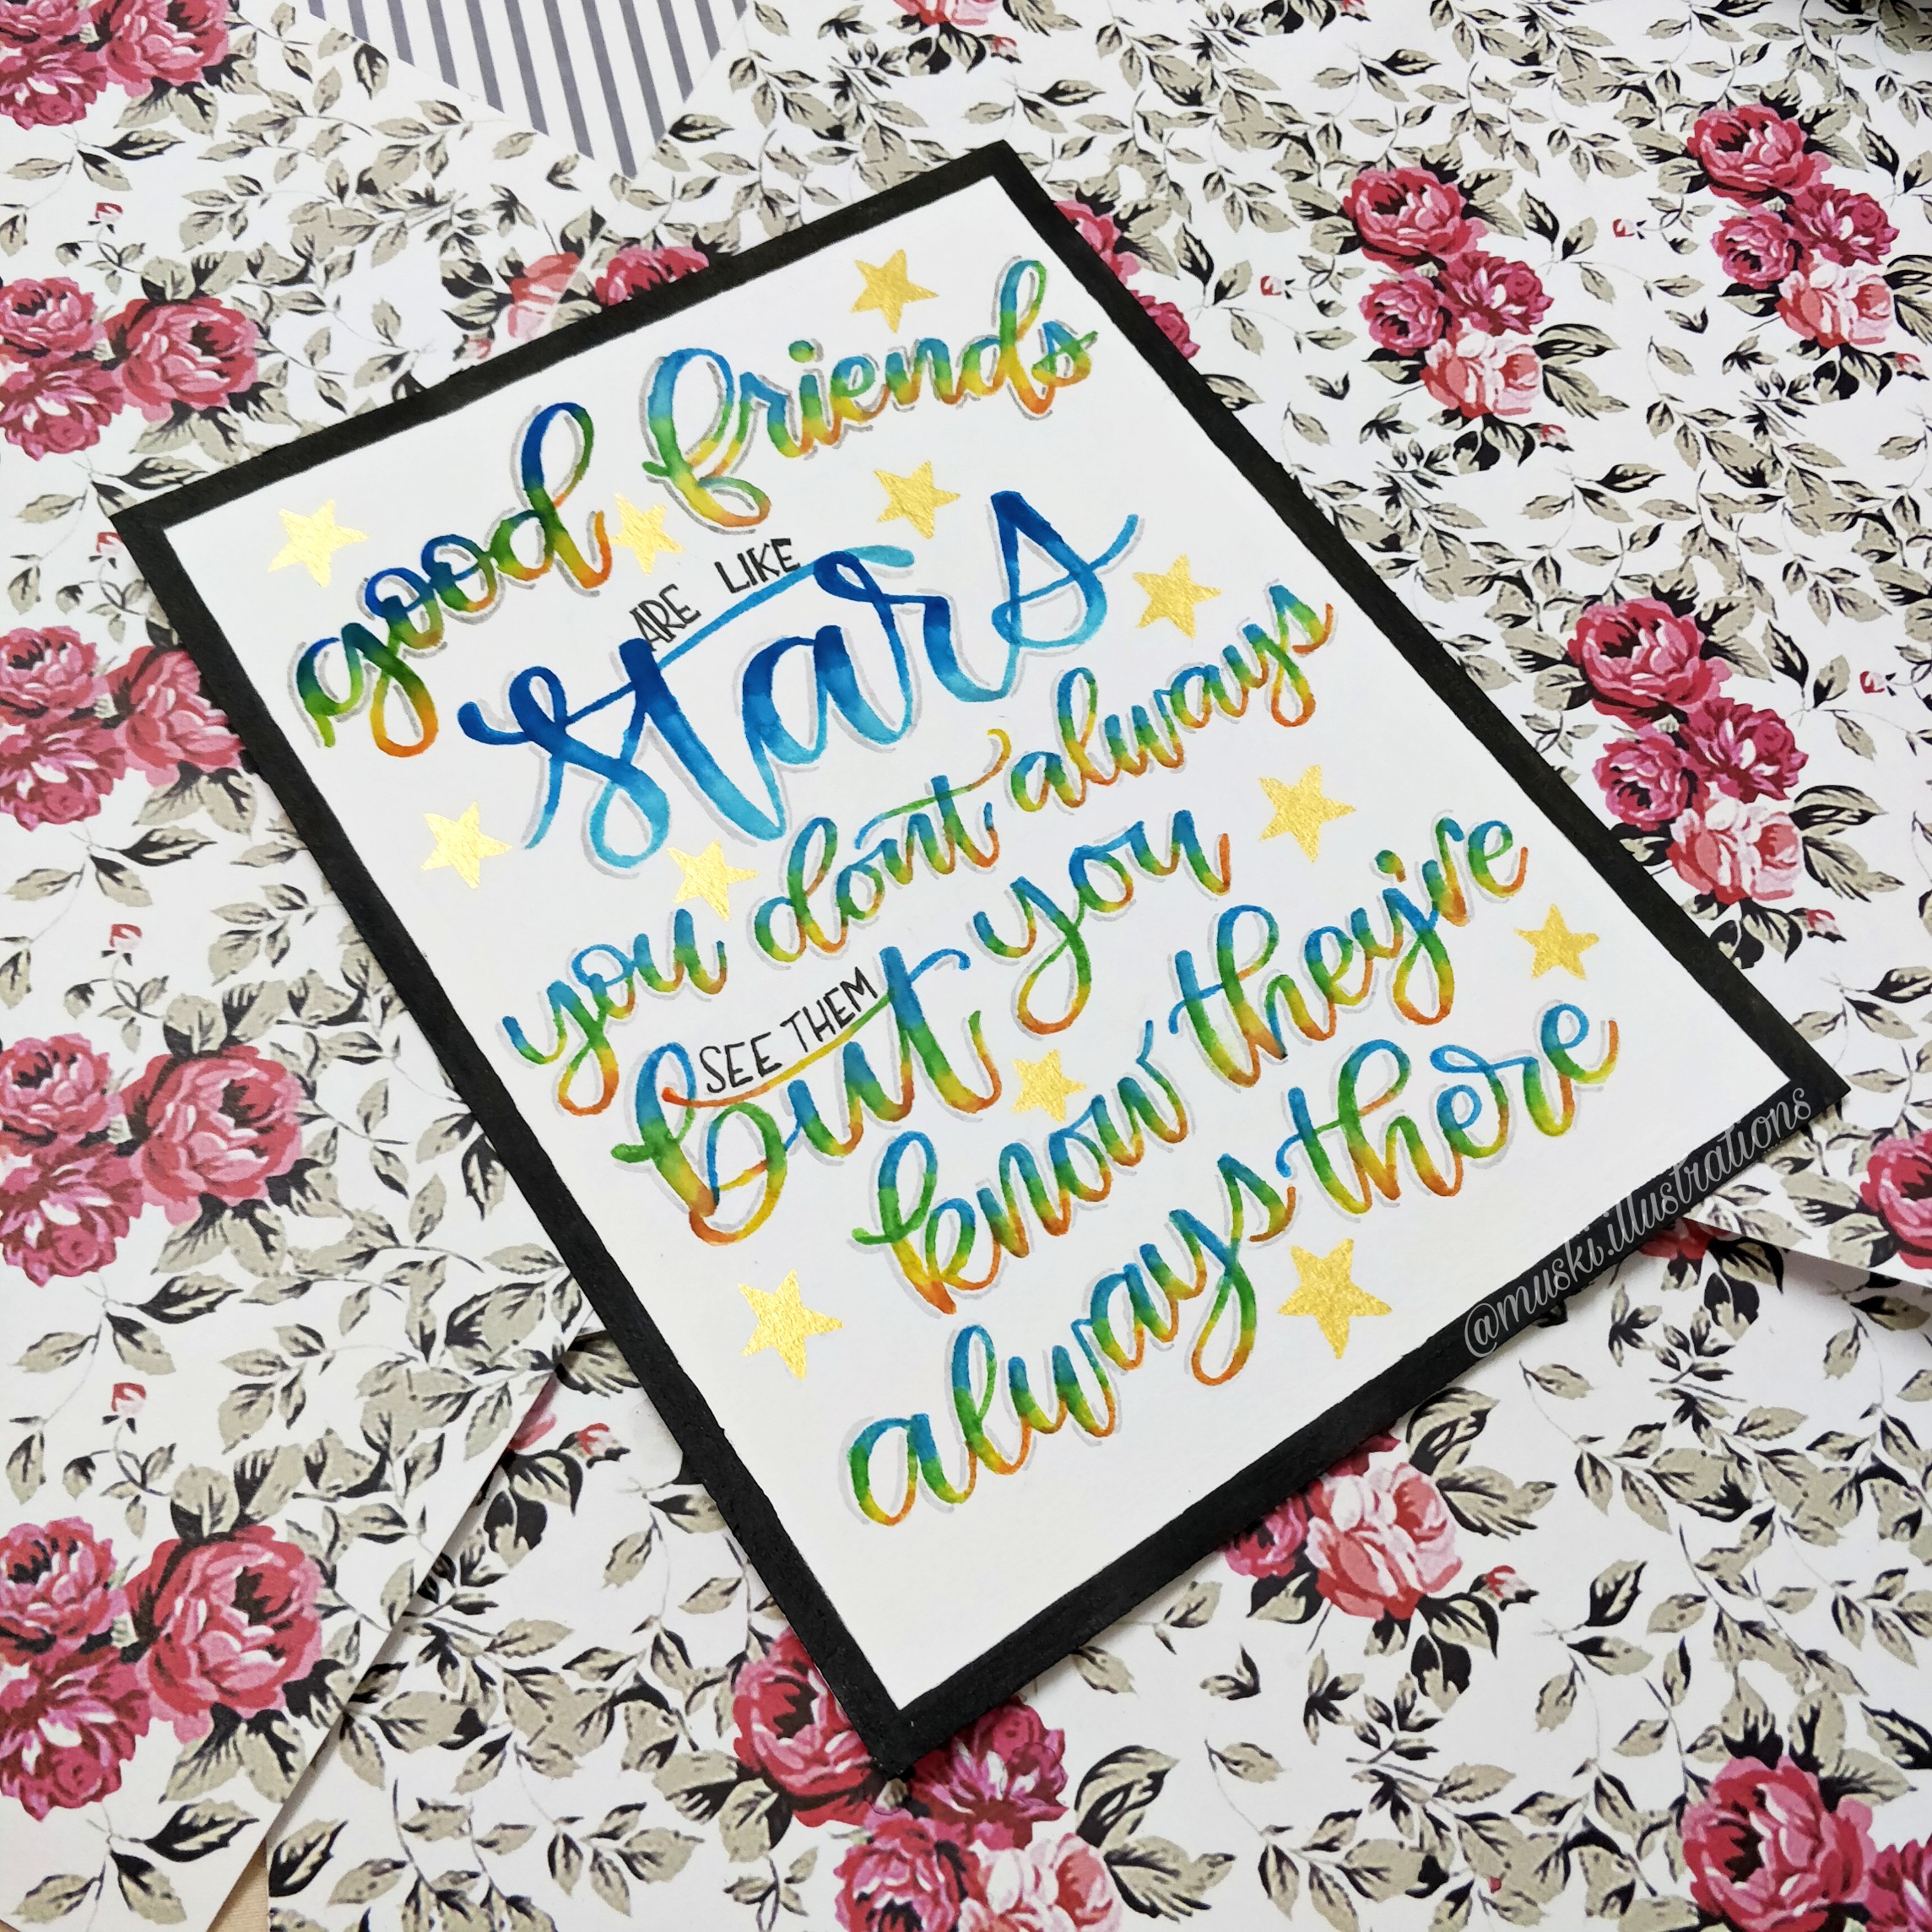 good friends
ARE LIKE
stars
you dont always
SEE THEM
but you
know they're
always there
@muski.illustrations